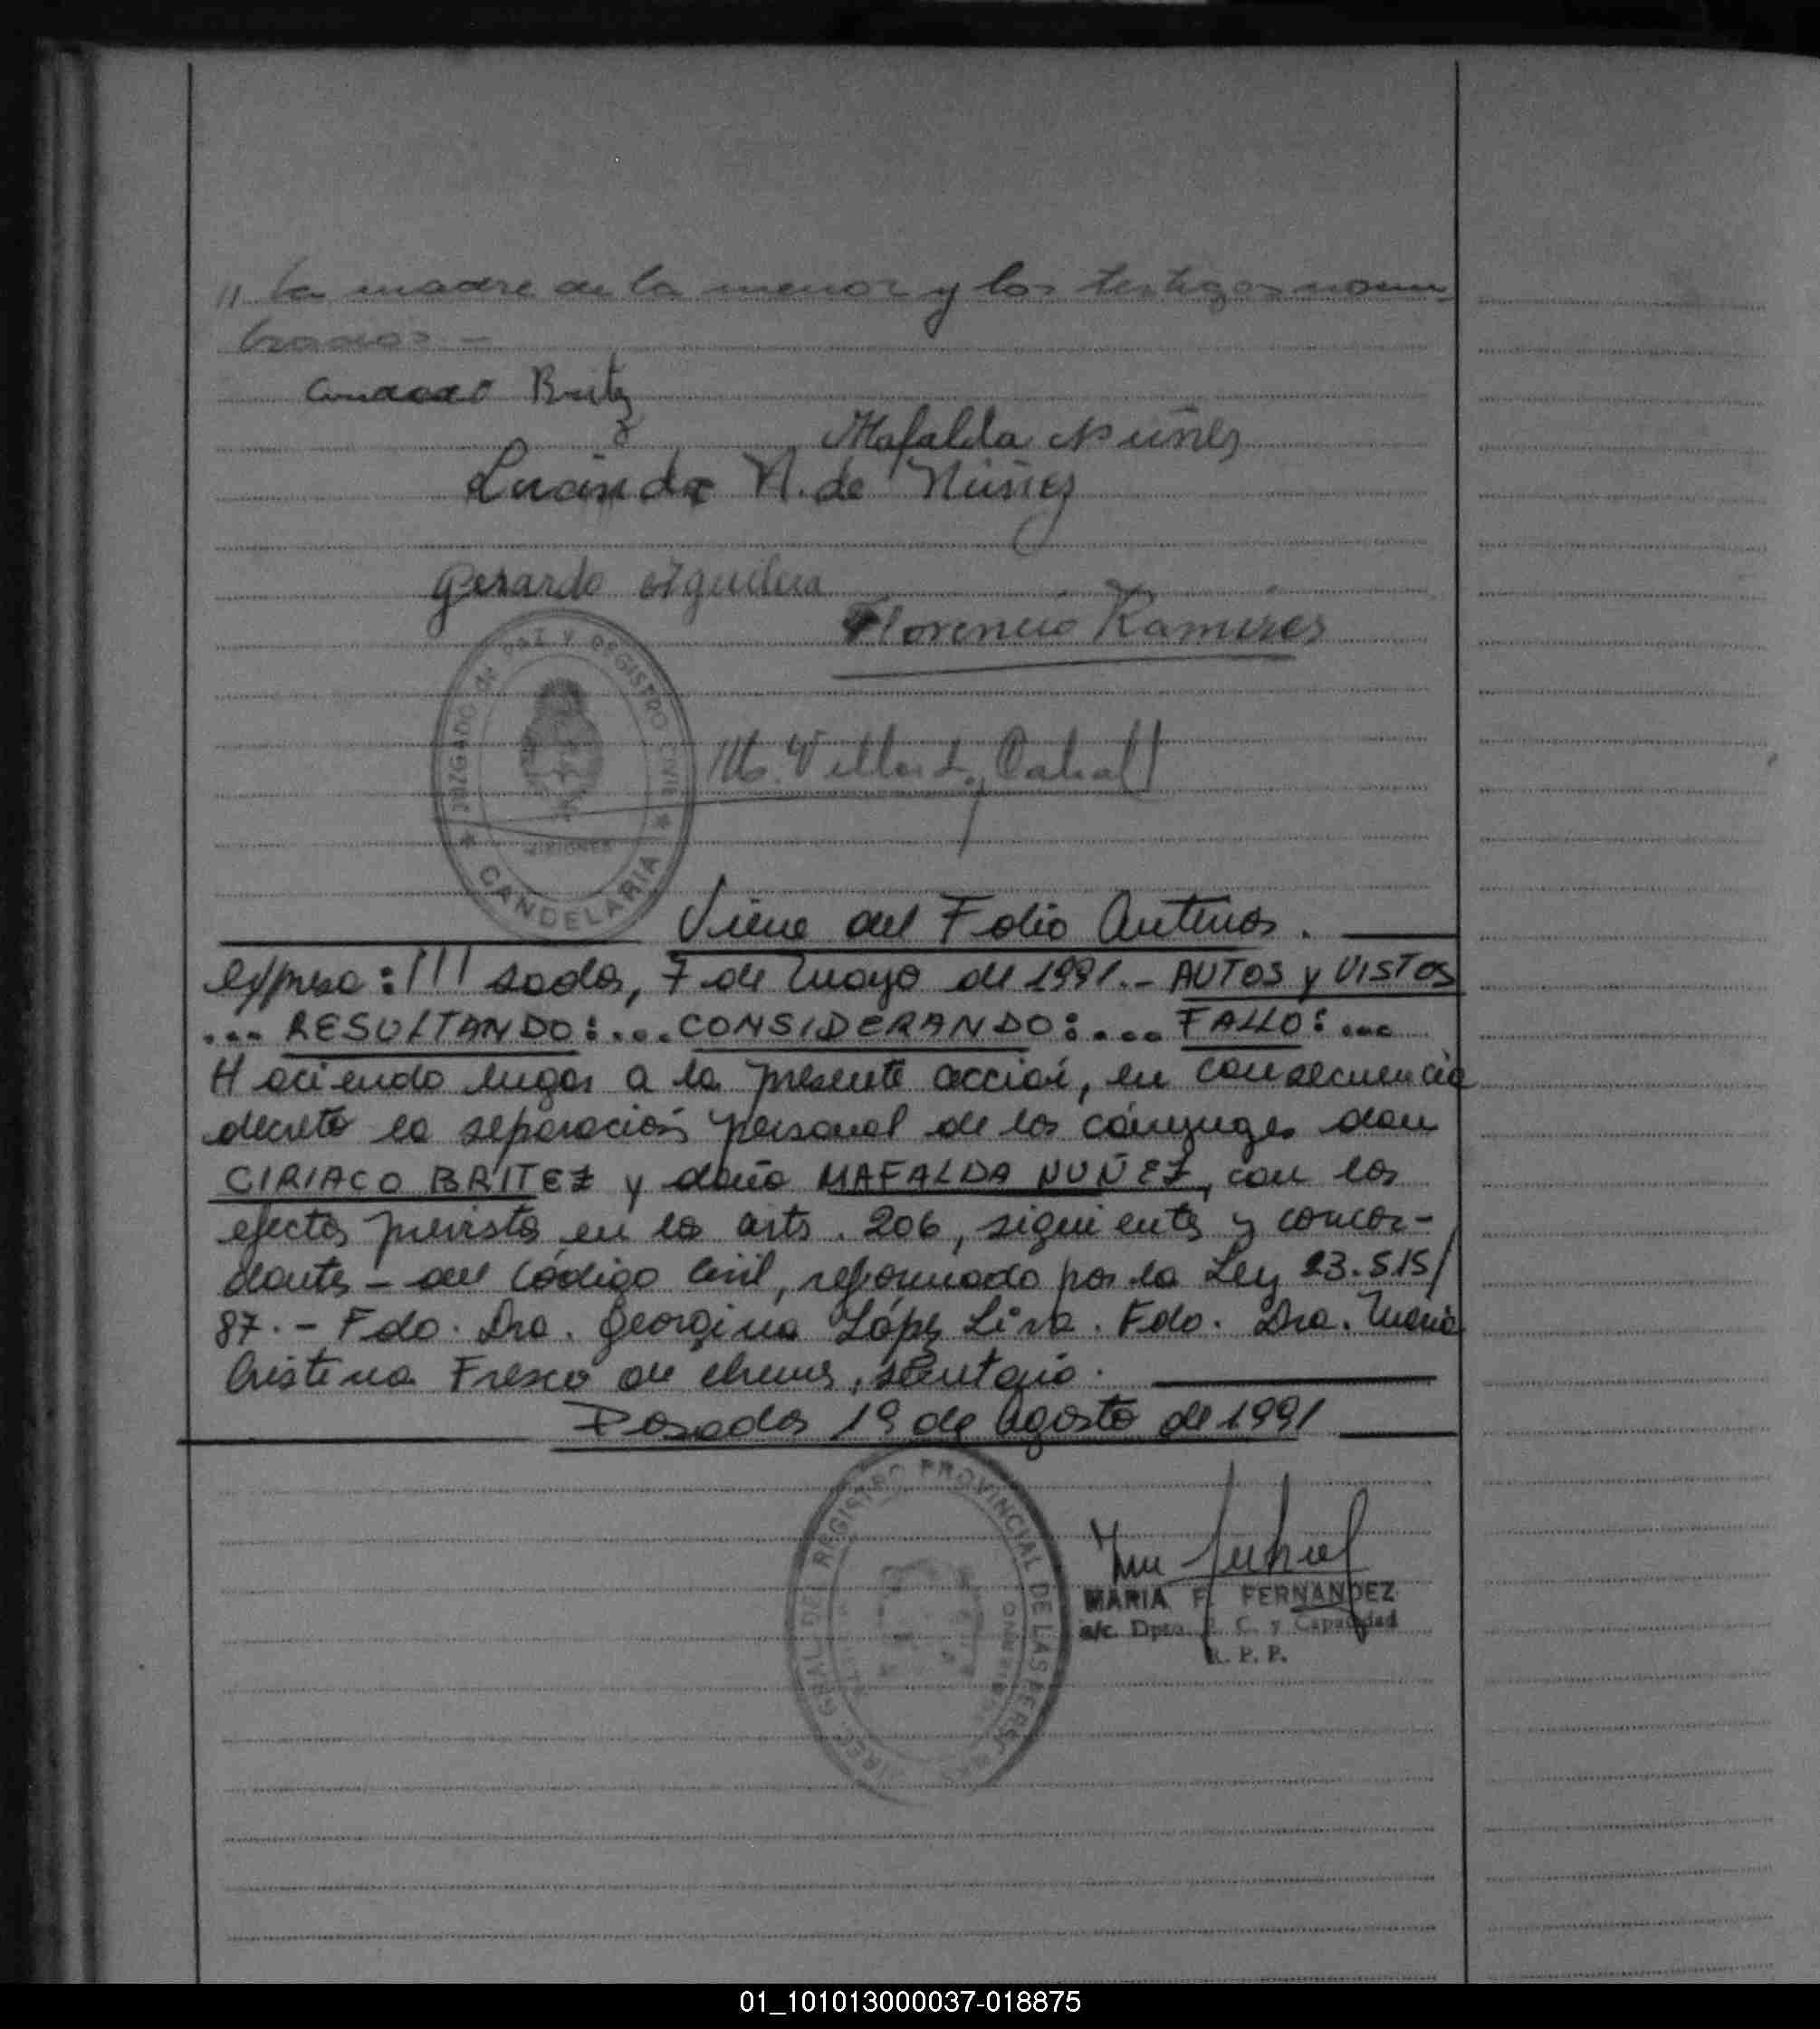 " la madre de la menor y los testigos nom-
brados -
Britez
Mafalda Nuñez
Lucinda N. de Núñez
Gerardo Aguilera
Florencio Ramirez
JUZGADO de PAZ Y REGISTRO CIVIL
MISIONES
★ CANDELARIA ★
Viene del Folio Anterior.
expresa: /// sadas, 7 de Mayo de 1991.- AUTOS y VISTOS
... RESULTANDO:... CONSIDERANDO:.... FALLO:...
Haciendo lugar a la presente acción, en consecuencia
decreto la separación personal de los cónyuges don
CIRIACO BRITEZ y doña MAFALDA NUÑEZ, con los
efectos previstos en los arts. 206, siguientes y concor-
dantes - del Código Civil, reformado por la Ley 23.515/
87.- Fdo. Dra. Georgina López Liva. Fdo. Dra. María
Cristina Fresco de , secretaria.
Posadas 19 de Agosto de 1991
DIREC. GRAL. DEL REGISTRO PROVINCIAL DE LAS PERSONAS
MARIA F. FERNANDEZ
a/c. Dpto. E. C. y Capacidad
R. P. P.
01_101013000037-018875